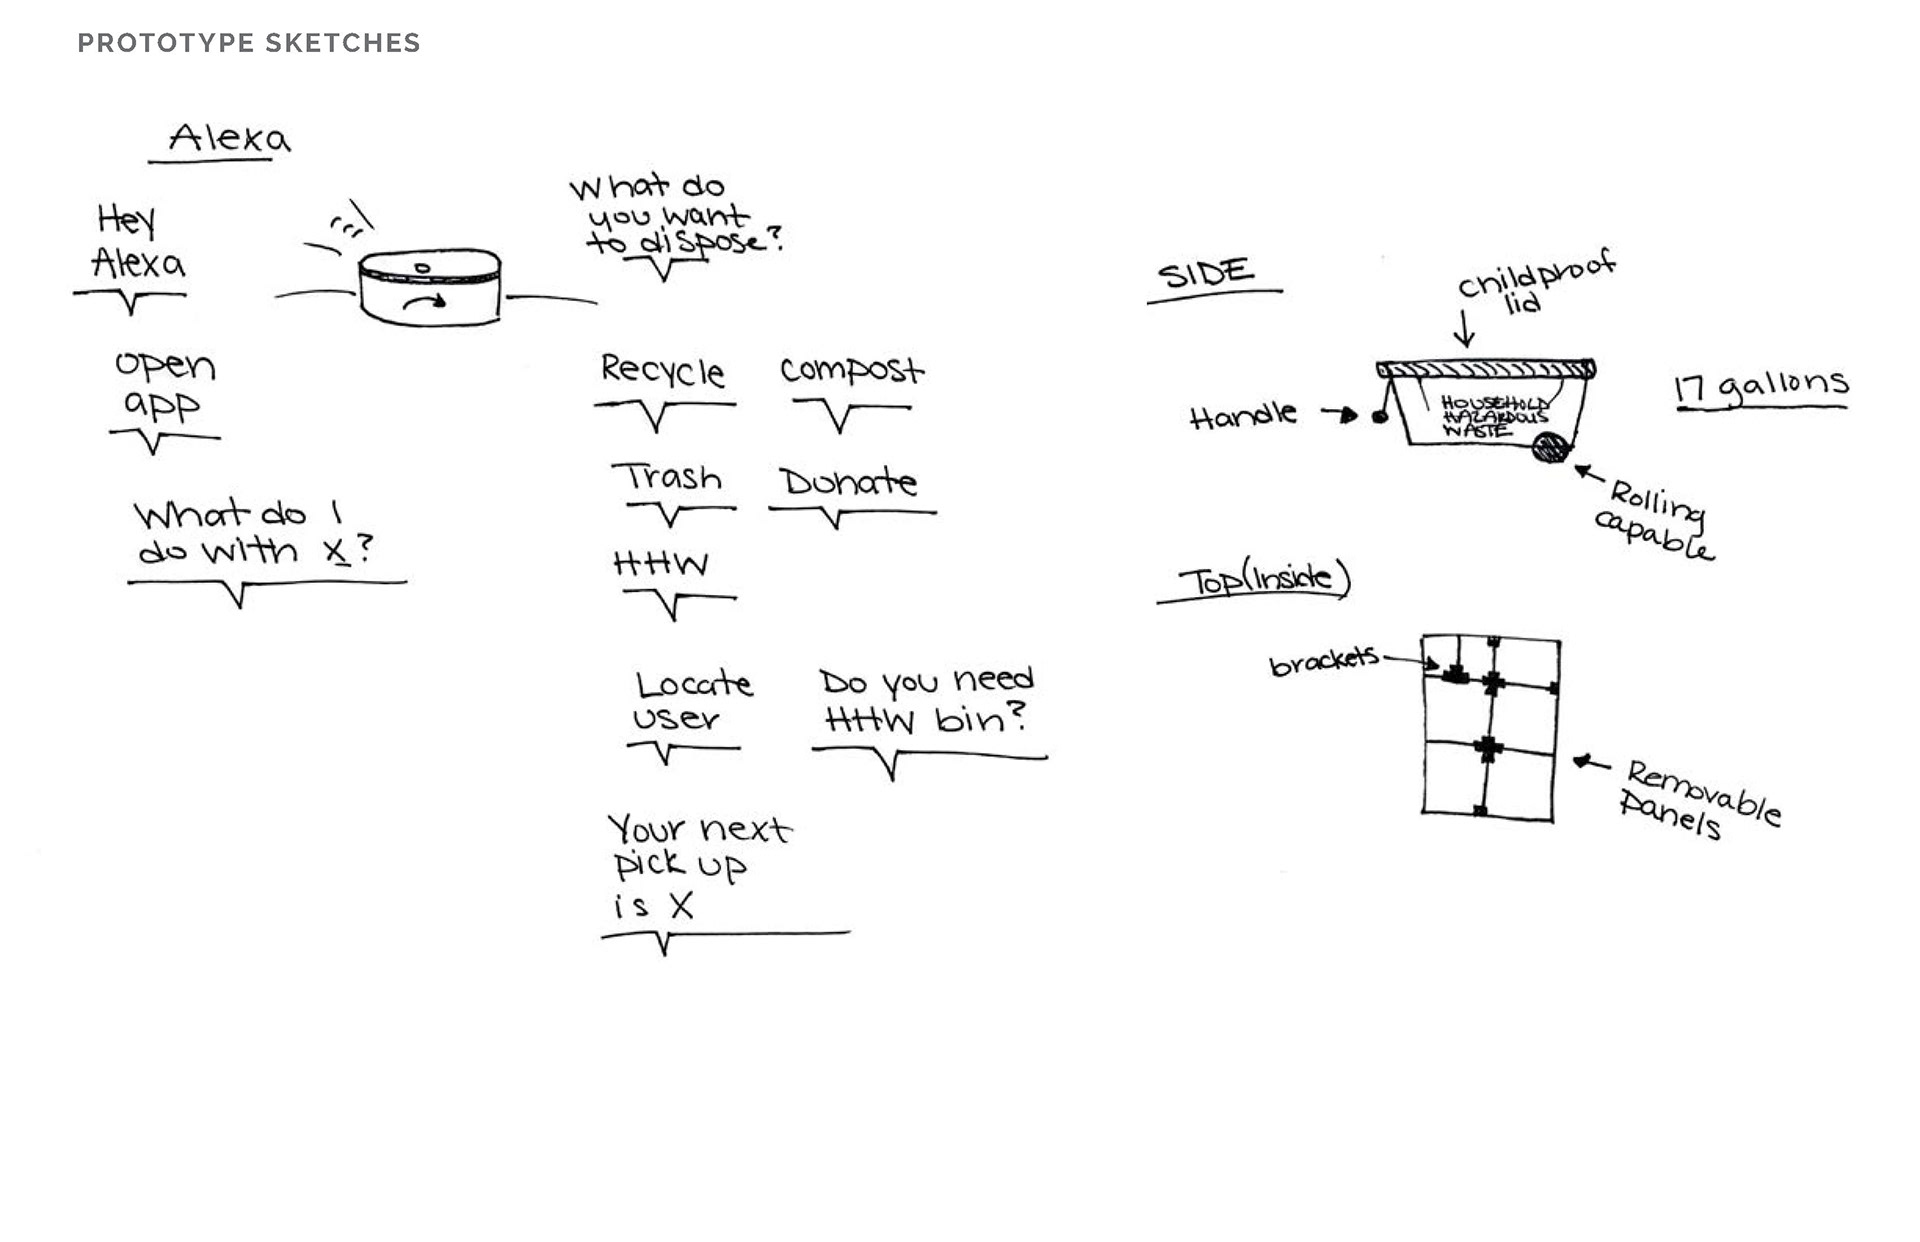 PROTOTYPE SKETCHES
Alexa
Hey
Alexa
open
app
What do I
do with X?
What do
you want
to dispose?
Recycle
compost
Trash
Donate
HHW
Locate
user
Do you need
HHW bin?
Your next
pick up
is X
SIDE
childproof
lid
Handle
HOUSEHOLD
HAZARDOUS
WASTE
17 gallons
Rolling
capable
Top(Inside)
brackets
Removable
panels